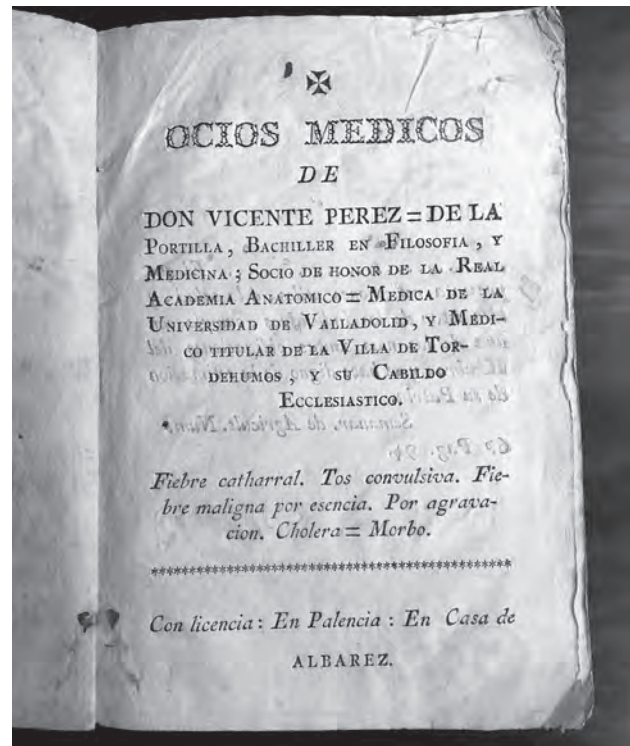 OCIOS MEDICOS
DE
DON VICENTE PEREZ = DE LA
PORTILLA, BACHILLER EN FILOSOFIA, Y
MEDICINA; SOCIO DE HONOR DE LA REAL
ACADEMIA ANATOMICO = MEDICA DE LA
UNIVERSIDAD DE VALLADOLID, Y MEDI-
CO TITULAR DE LA VILLA DE TOR-
DEHUMOS, Y SU CABILDO
ECCLESIASTICO.
Fiebre catharral. Tos convulsiva. Fie-
bre maligna por esencia. Por agrava-
cion. Cholera = Morbo.
***********************************************
Con licencia: En Palencia: En Casa de
ALBAREZ.